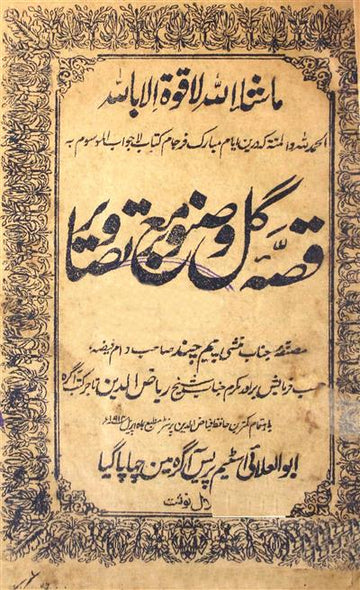 ماشاء اللہ لا قوۃ الا باللہ
الحمد للہ والمنۃ کہ درین ایام مبارک فرجام کتاب لاجواب الموسوم بہ
قصّہ گل و صنوبر مع تصاویر
مصنفہ جناب منشی پیم چند صاحب دام فیضہ
حسب فرمایش برادر مکرم جناب شیخ ریاض الدین تاجر کتب آگرہ
باہتمام کمترین حافظ فیاض الدین پرنٹر مطبع ماہ اپریل ۱۹۱۲ء
ابوالعلائی اسٹیم پریس آگرہ مین چھاپا گیا